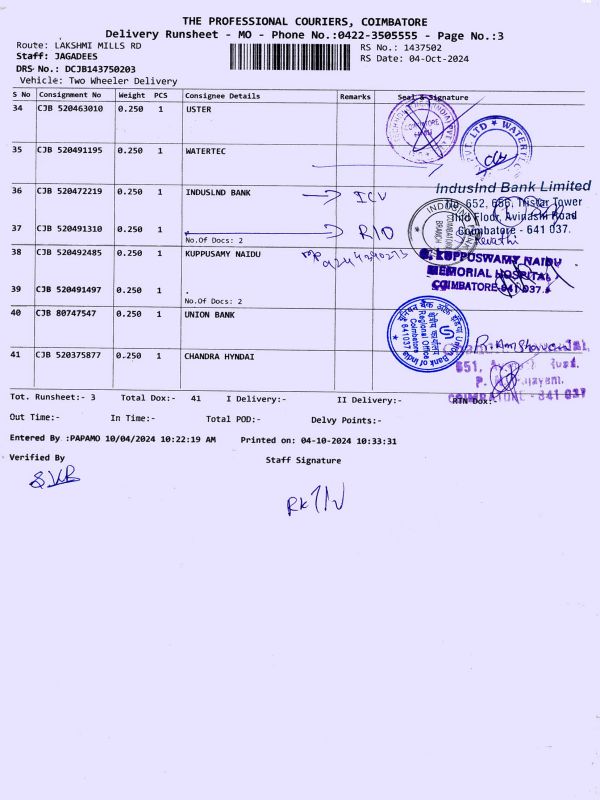 THE PROFESSIONAL COURIERS, COIMBATORE
Delivery Runsheet - MO - Phone No.:0422-3505555 - Page No.:3
Route: LAKSHMI MILLS RD
RS No.: 1437502
Staff: JAGADEES
RS Date: 04-Oct-2024
DRS No.: DCJB143750203
Vehicle: Two Wheeler Delivery
S No Consignment No Weight PCS Consignee Details Remarks Seal & Signature
34 CJB 520463010 0.250 1 USTER
35 CJB 520491195 0.250 1 WATERTEC
PVT. LTD ★ WATERTEC
36 CJB 520472219 0.250 1 INDUSLND BANK
ICV
IndusInd Bank Limited
No. 652, 656, Tristar Tower
IIIrd Floor, Avinashi Road
Coimbatore - 641 037.
37 CJB 520491310 0.250 1 .
No.Of Docs: 2
R10
Revathi
COIMBATORE BRANCH
38 CJB 520492485 0.250 1 KUPPUSAMY NAIDU
G. KUPPUSWAMY NAIDU
MEMORIAL HOSPITAL
COIMBATORE-641 037.
39 CJB 520491497 0.250 1 .
No.Of Docs: 2
40 CJB 80747547 0.250 1 UNION BANK
यूनियन बैंक ऑफ इंडिया Union Bank of India
क्षेत्रीय कार्यालय
Regional Office
Coimbatore
641037
41 CJB 520375877 0.250 1 CHANDRA HYNDAI
COIMBATORE - 641 037
Tot. Runsheet:- 3 Total Dox:- 41 I Delivery:- II Delivery:- RTN Dox:-
Out Time:- In Time:- Total POD:- Delvy Points:-
Entered By :PAPAMO 10/04/2024 10:22:19 AM Printed on: 04-10-2024 10:33:31
Verified By
Staff Signature